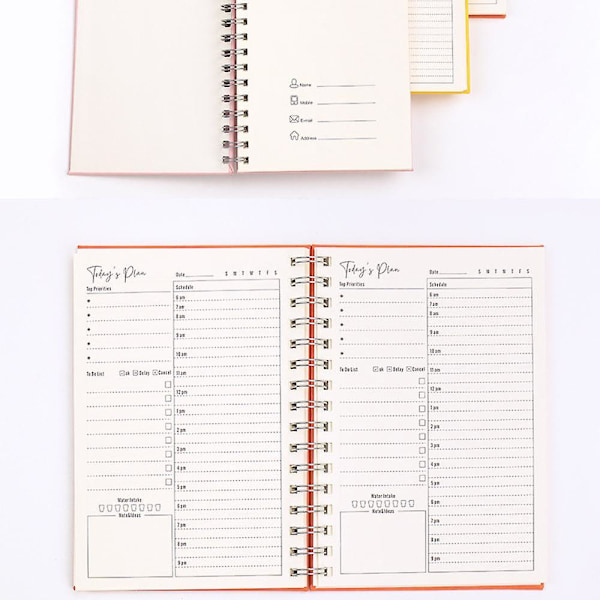 Name
Mobile
E-mail
Address
Today's Plan
Date
S M T W T F S
Top Priorities
Schedule
6 am
7 am
8 am
9 am
10 am
To Do List
ok Delay Cancel
11 am
12 pm
1 pm
2 pm
3 pm
4 pm
5 pm
Water Intake
6 pm
Note&Ideas
7 pm
8 pm
9 pm
Today's Plan
Date
S M T W T F S
Top Priorities
Schedule
6 am
7 am
8 am
9 am
10 am
To Do List
ok Delay Cancel
11 am
12 pm
1 pm
2 pm
3 pm
4 pm
5 pm
Water Intake
6 pm
Note&Ideas
7 pm
8 pm
9 pm